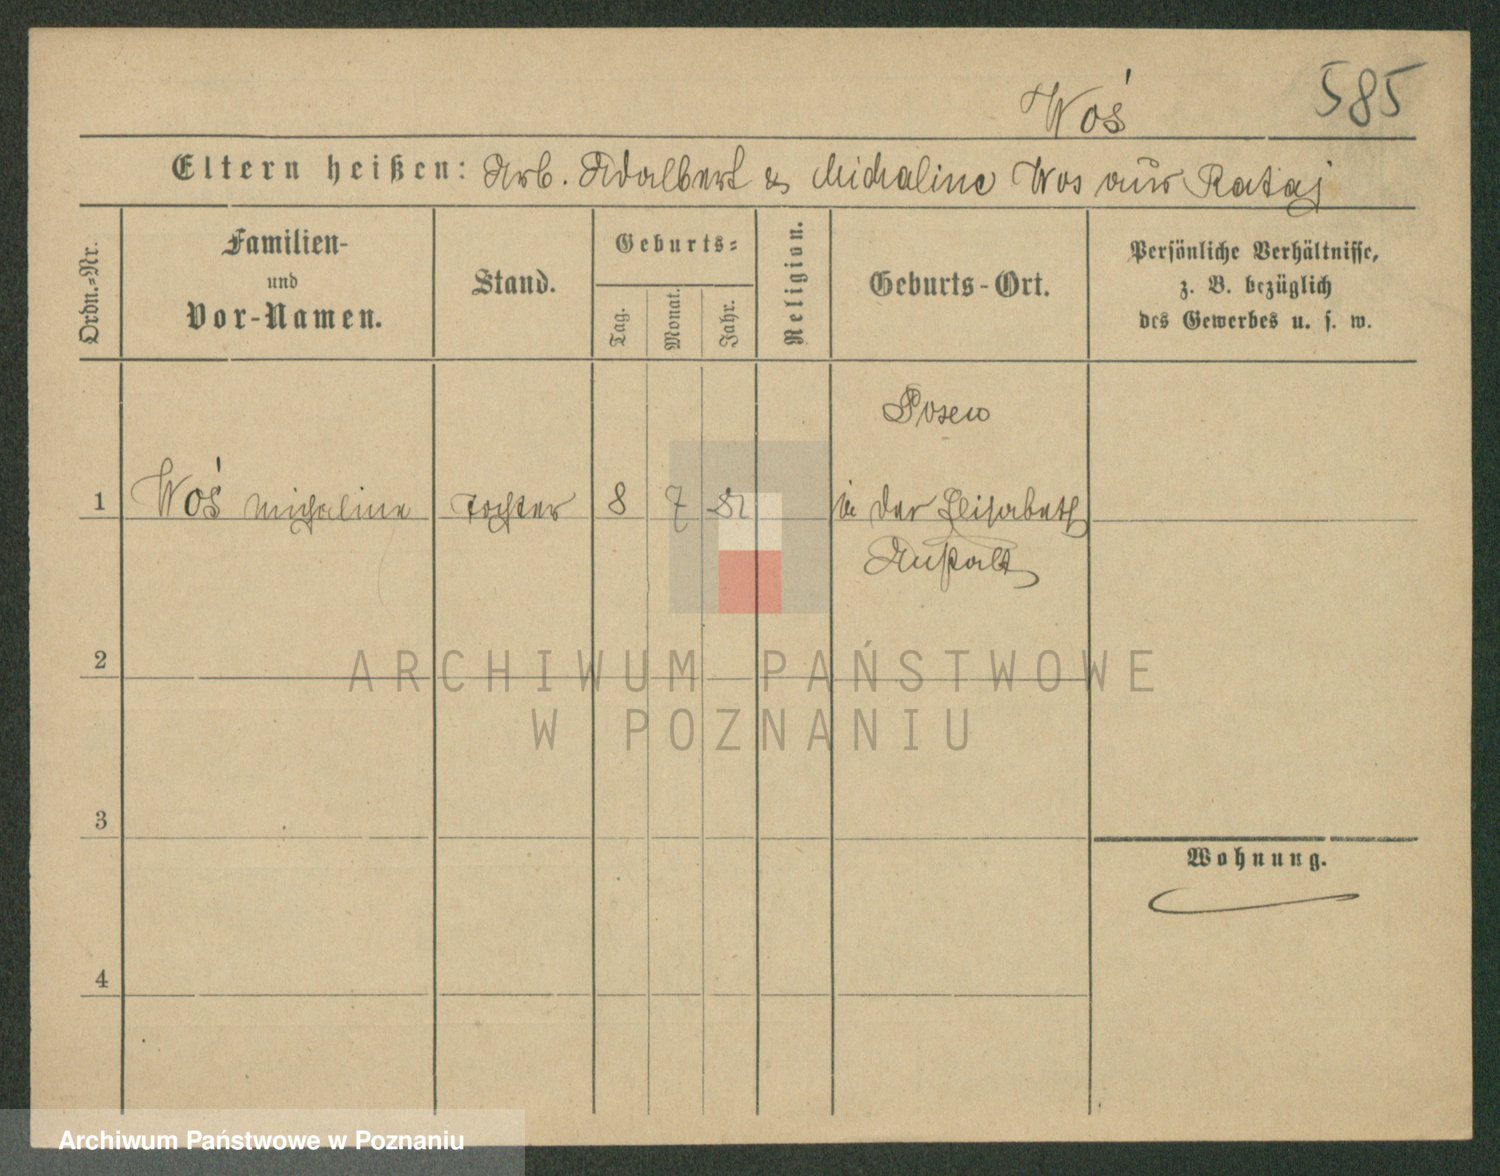 585
Woś
Eltern heißen: Arb. Adalbert & Michaline Wos aus Rataj
Ordn.-Nr.
Familien-
und
Vor-Namen.
Stand.
Geburts-
Tag.
Monat.
Jahr.
Religion.
Geburts-Ort.
Persönliche Verhältnisse,
z. B. bezüglich
des Gewerbes u. s. w.
Posen
1 Woś Michaline Tochter 8 7 82 in der Elisabeth
Anstalt
2
ARCHIWUM PAŃSTWOWE
W POZNANIU
3
Wohnung.
4
Archiwum Państwowe w Poznaniu